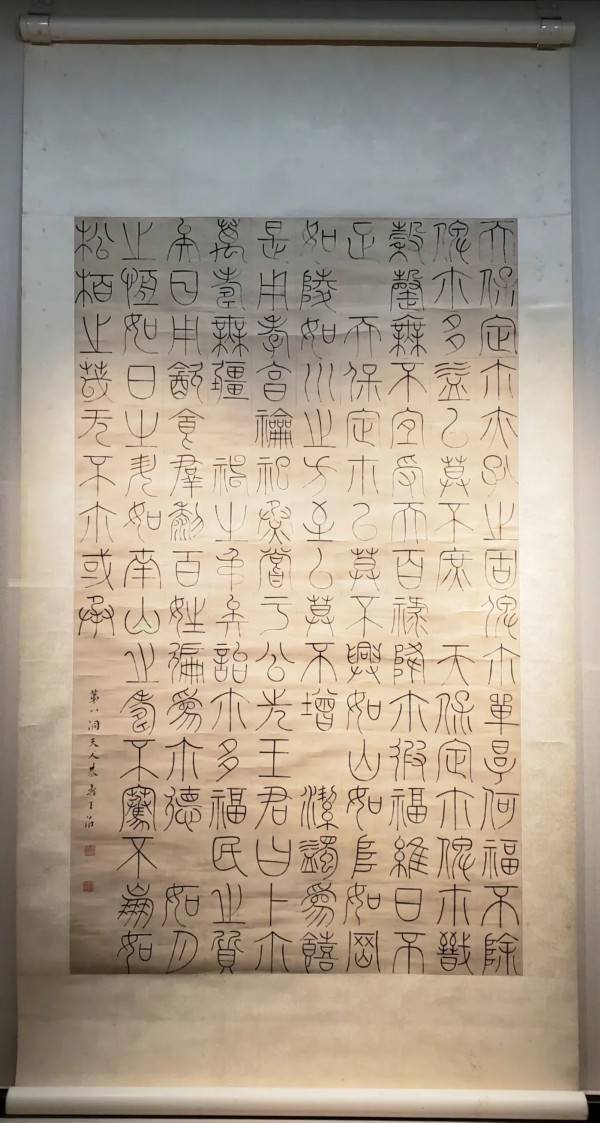 天保定尔亦孔之固俾尔單厚何福不除
俾尔多益以莫不庶 天保定尔俾尔戩
穀罄無不宜受天百祿降尔遐福維日不
足 天保定尔以莫不興如山如阜如岡
如陵如川之方至以莫不增 潔蠲為饎
是用孝享禴祀烝嘗于公先王君曰卜尔
萬壽無疆 神之弔矣詒尔多福民之質
矣日用飲食群黎百姓徧為尔德 如月
之恆如日之升如南山之壽不騫不崩如
松柏之茂无不尔或承
第八洞天人恭壽王澍